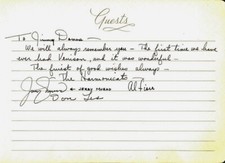 Guests
To Jimmy Donna —
We will always remember you — The first time we have
ever had Venison, and it was wonderful —
The finest of good wishes always —
The Harmonicats
Jerry Murad Al Fiore
Don Les